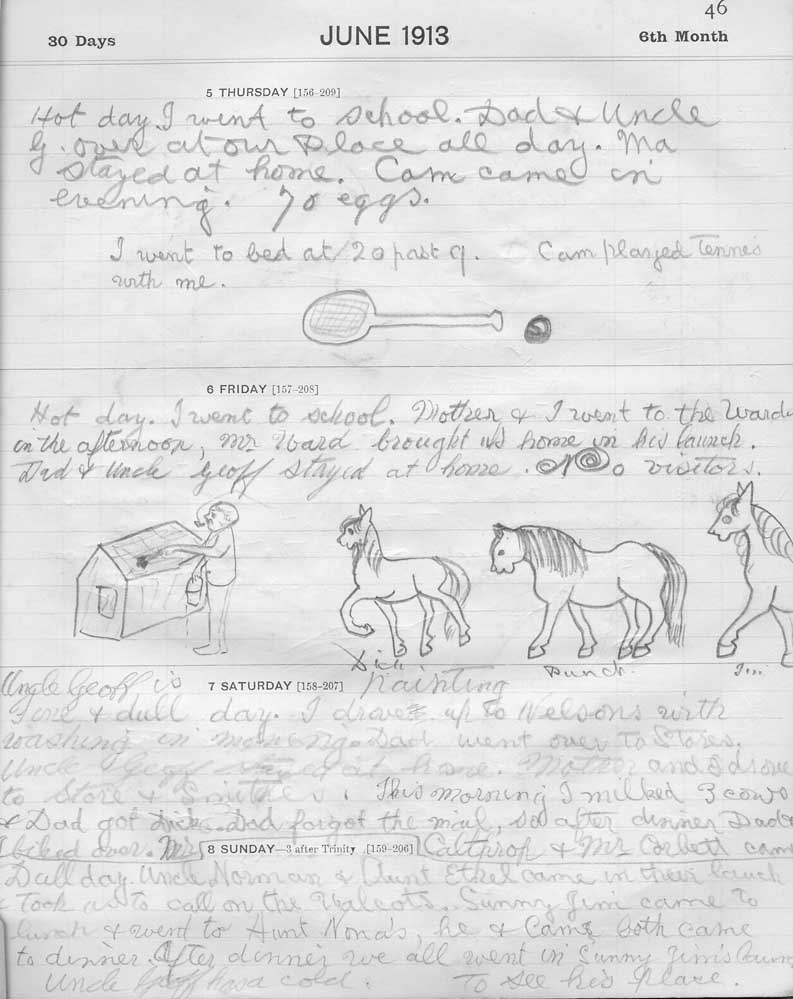 46
30 Days JUNE 1913 6th Month
5 THURSDAY [156-209]
Hot day. I went to school. Dad & Uncle
G. over at our place all day. Ma
stayed at home. Cam came in
evening. 70 eggs.
I went to bed at 20 past 9. Cam played Tennis
with me.
6 FRIDAY [157-208]
Hot day. I went to school. Mother & I went to the Wards
in the afternoon, Mr Ward brought us home in his launch.
Dad & Uncle Geoff stayed at home. No visitors.
Dick
Punch.
Jim
Uncle Geoff is painting
7 SATURDAY [158-207]
Fine & dull day. I drove up to Nelsons with
washing in morning. Dad went over to Stores.
Uncle Geoff stayed at home. Mother and I drove
to Store & This morning I milked 3 cows
& Dad got Dad forgot the mail, so after dinner Dad &
I biked over. Mrs Calthrop & Mr Corbett came
8 SUNDAY—3 after Trinity [159-206]
Dull day. Uncle Norman & Aunt Ethel came in their launch
& took us to call on the Walcots. Sunny Jim came to
lunch & went to Aunt Nona's, he & Cam both came
to dinner. After dinner we all went in Sunny Jim's launch
Uncle Geoff has a cold. To see his place.